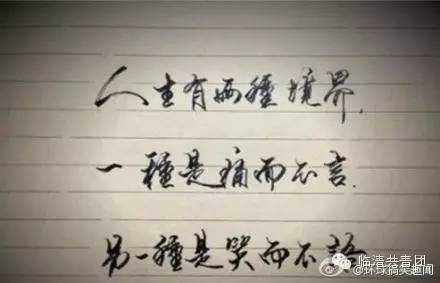 人生有兩種境界,
一種是痛而不言.
另一種是笑而不語
临清共青团
@环球搞笑趣闻